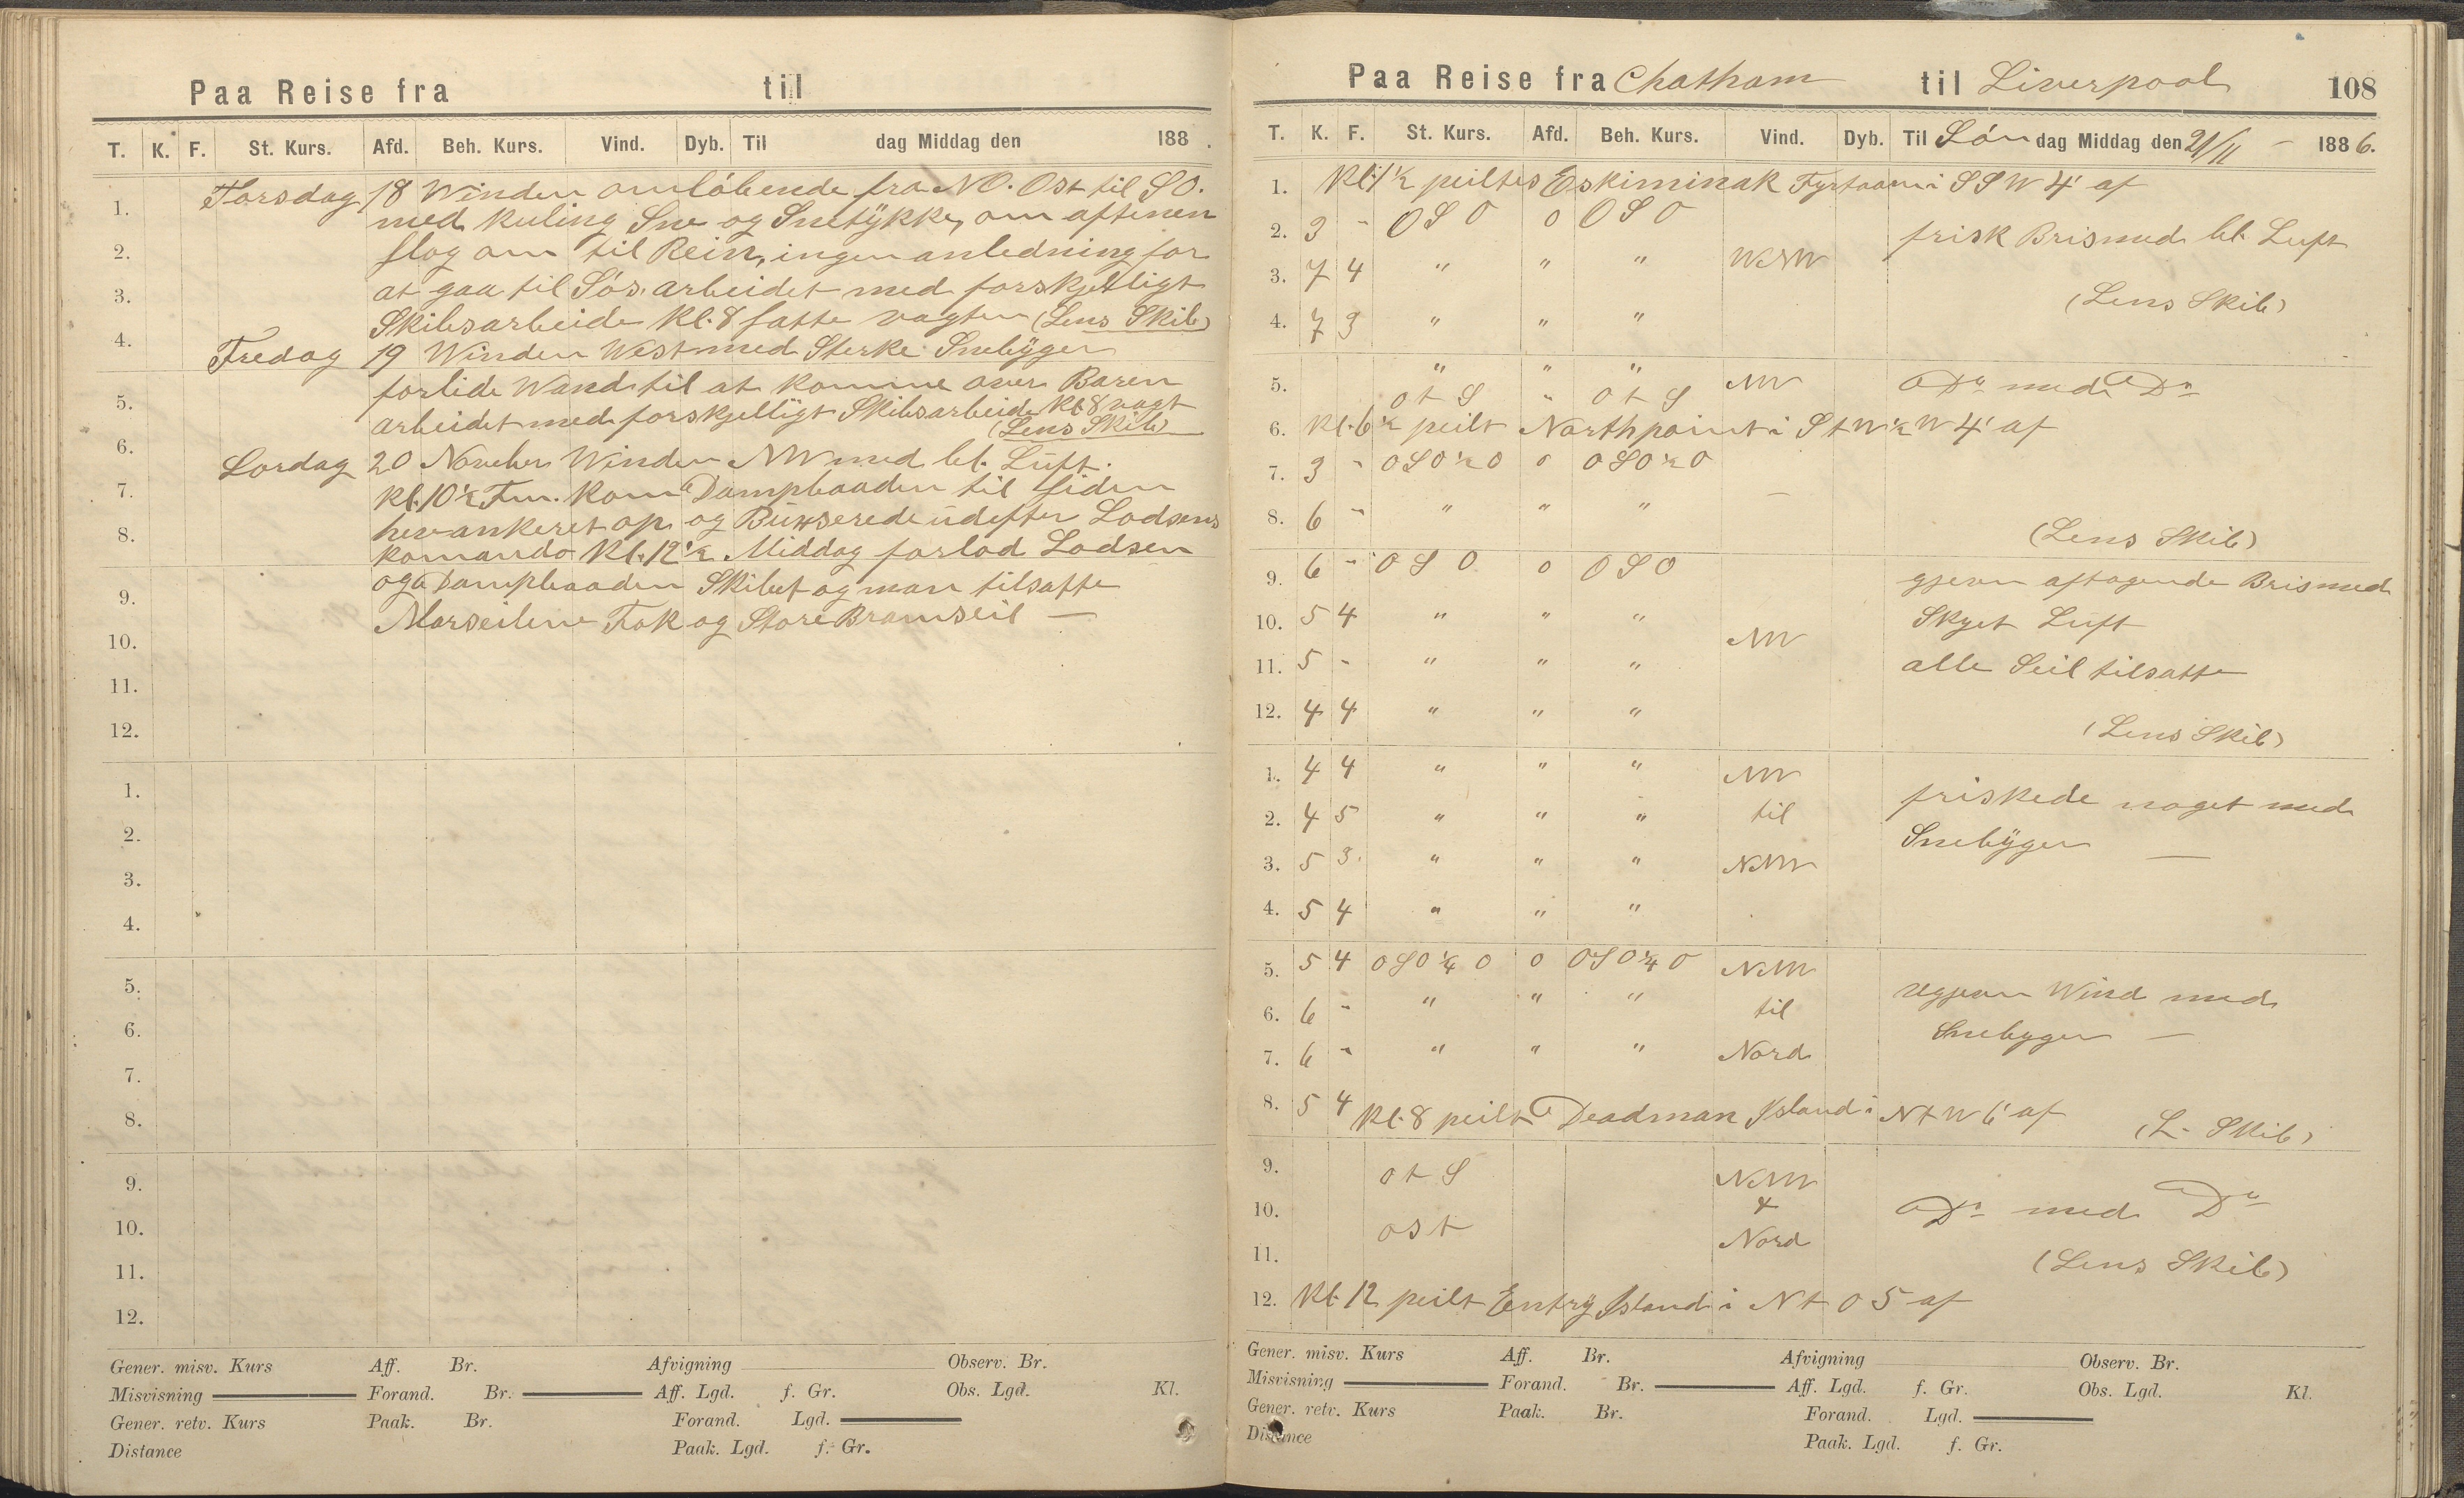 Paa Reise fra til
T. K. F. St. Kurs. Afd. Beh. Kurs. Vind. Dyb. Til dag Middag den 188 .
Torsdag 18 Winden omløbende fra NO. Ost til SO.
1. med Kuling Sne og Snetÿkke, om aftenen
2. slog om til Rein, ingen anledning for
3. at gaa til Søs. arbeidet med forskjelligt
Skibsarbeide Kl. 8 satte vagten (Lens Skib)
4. Fredag 19 Winden West med Sterke Snebÿger
forlide Wand til at komme over Baren
5. arbeidet med forskjelligt Skibsarbeide Kl 8 vagt
(Lens Skib)
6. Lordag 20 Noveber Winden NW med bl. Luft.
7. Kl. 10½ Fm. kom Dampbaaden til siden
hev ankeret op og Buxserede udefter Lodsens
8. komando Kl. 12½ Middag forlod Lodsen
og Dampbaaden Skibet og man tilsatte
9. Marseilene Fok og Store Bramseil —
10.
11.
12.
1.
2.
3.
4.
5.
6.
7.
8.
9.
10.
11.
12.
Gener. misv. Kurs Aff. Br. Afvigning Observ. Br.
Misvisning Forand. Br. Aff. Lgd. f. Gr. Obs. Lgd. Kl.
Gener. retv. Kurs Paak. Br. Forand. Lgd.
Distance Paak. Lgd. f. Gr.
Paa Reise fra Chatham til Liverpool 108
T. K. F. St. Kurs. Afd. Beh. Kurs. Vind. Dyb. Til Søn dag Middag den 21/11 - 1886.
1. Kl. 1½ peiltes Eskiminak Fyrtaarn i SSW 4' af
2. 3 - OSO 0 OSO frisk Bris med bl. Luft
3. 7 4 " " " WNW
(Lens Skib)
4. 7 3 " " "
5. " " "
o t S " o t S NW Do med Do
6. Kl. 6½ peilt Northpoint i S t W ½ W 4' af
7. 3 - OSO½O 0 OSO½O
8. 6 - " " " —
(Lens Skib)
9. 6 - OSO 0 OSO gjevn aftagende Bris med
10. 5 4 " " " NW Skyet Luft
11. 5 - " " " alle Seil tilsatte
12. 4 4 " " " (Lens Skib)
1. 4 4 " " " NW friskede noget med
2. 4 5 " " " til Snebÿger —
3. 5 3. " " " NNW
4. 5 4 " " "
5. 5 4 OSO¼O 0 OSO¼O NNW ugjevn Wind med
6. 6 - " " " til Snebyger —
7. 6 - " " " Nord
8. 5 4 Kl. 8 peilt Deadman Island i N t W 6' af (L. Skib)
9. o t S NNW
10. & Do med Do
ost Nord
11. (Lens Skib)
12. Kl. 12 peilt Entrÿ Island i N t O 5 af
Gener. misv. Kurs Aff. Br. Afvigning Observ. Br.
Misvisning Forand. Br. Aff. Lgd. f. Gr. Obs. Lgd. Kl.
Gener. retv. Kurs Paak. Br. Forand. Lgd.
Distance Paak. Lgd. f. Gr.